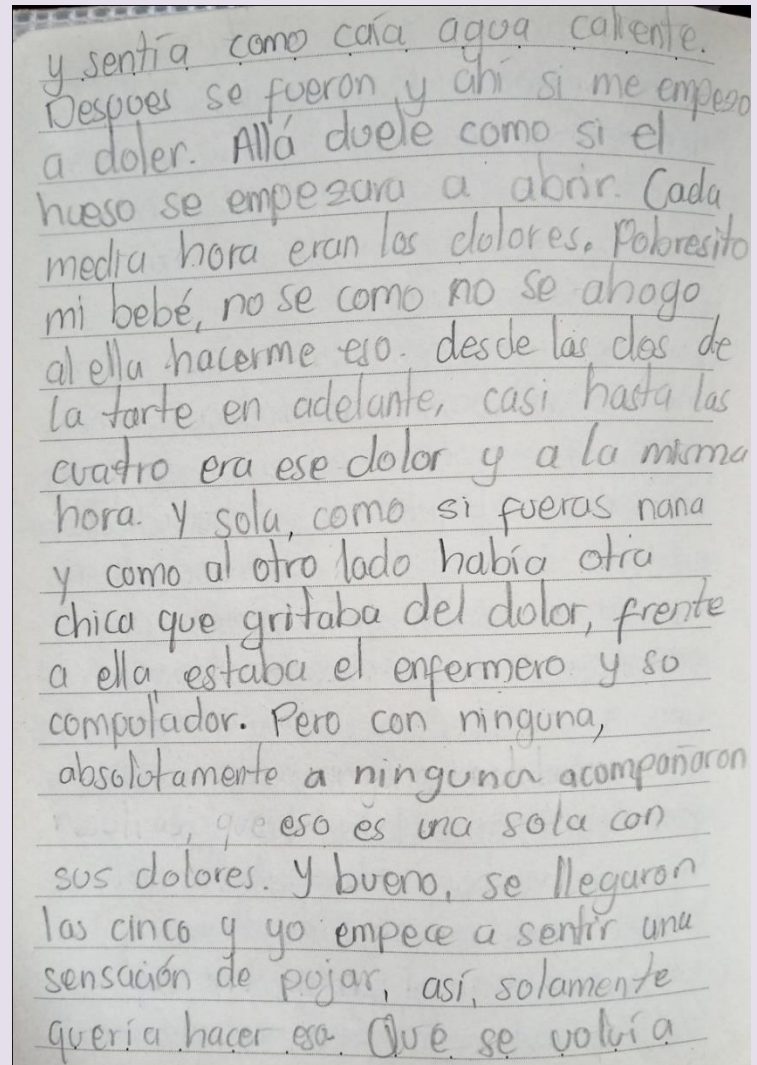 y sentía como caía agua caliente.
Despues se fueron y ahí si me empeso
a doler. Allá duele como si el
hueso se empezara a abrir. Cada
media hora eran los dolores. Pobresito
mi bebé, no se como no se ahogo
al ella hacerme eso. desde las dos de
la tarte en adelante, casi hasta las
cuatro era ese dolor y a la misma
hora. y sola, como si fueras nana
y como al otro lado había otra
chica que gritaba del dolor, frente
a ella estaba el enfermero y so
computador. Pero con ninguna,
absolutamente a ninguna acompañaron
, que eso es una sola con
sus dolores. y bueno, se llegaron
las cinco y yo empece a sentir una
sensación de pojar, así, solamente
quería hacer eso. Que se volvía